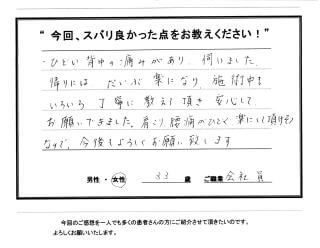 “ 今回、スバリ良かった点をお教えください！”
・ひどい背中の痛みがあり、伺いました。
帰りには だいぶ楽になり、施術中も
いろいろ丁寧に教えて頂き安心して
お願いできました。肩こり腰痛のひどく楽にして頂けそう
なので、今後もよろしくお願い致します
男性・女性 33 歳 ご職業 会社員
今回のご感想を一人でも多くの患者さんの方にご紹介させて頂きたいのです。
よろしくお願いいたします。